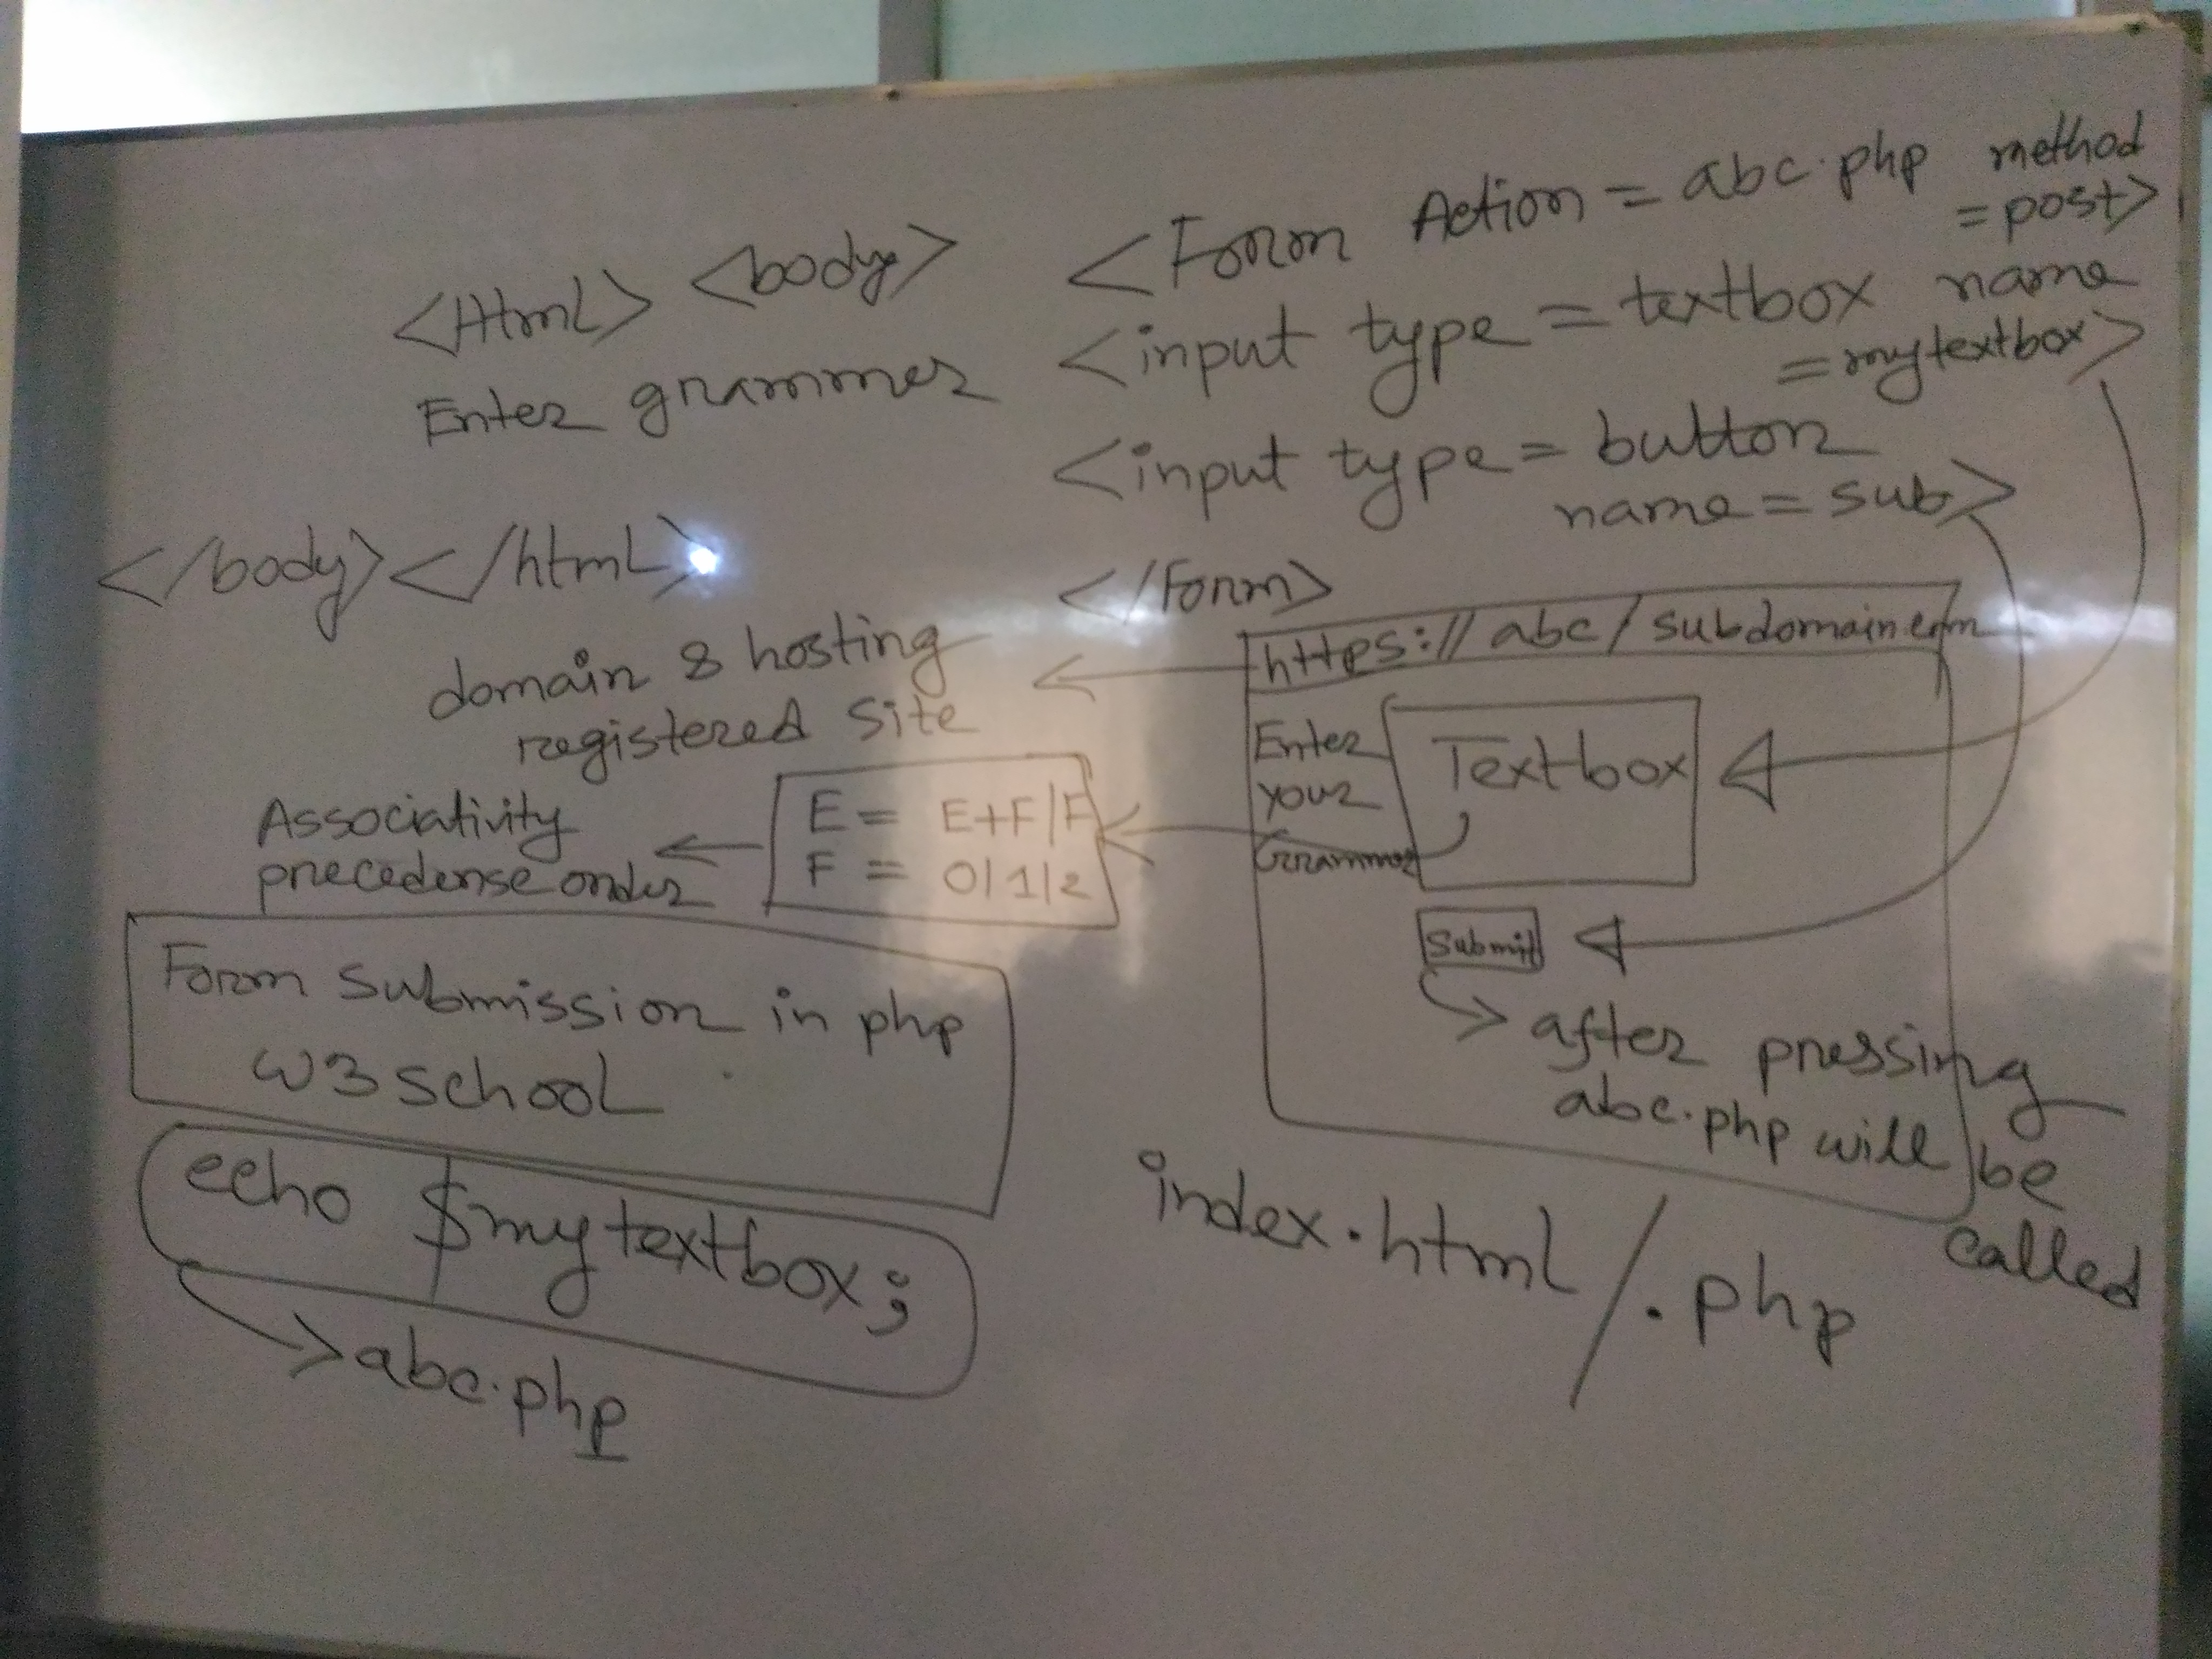 <Html> <body>
Enter grammer
</body></html>
<Form Action = abc.php method
=post>
<input type = textbox name
=mytextbox>
<input type = button
name = sub>
</Form>
domain & hosting
registered site
https://abc/subdomain.com
Enter
your
Grammer
Textbox
Submit
after pressing
abc.php will be
called
E = E+F|F
F = 0|1|2
Associativity
precedense order
Form submission in php
w3school
echo $mytextbox;
abc.php
index.html/.php